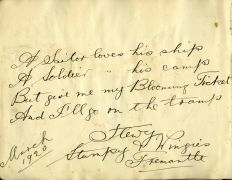 A Sailor loves his ship
A Soldier " his camp
But give me my Blooming Ticket
And I'll go on the tramp
Stumpy
Fremantle
March
1920